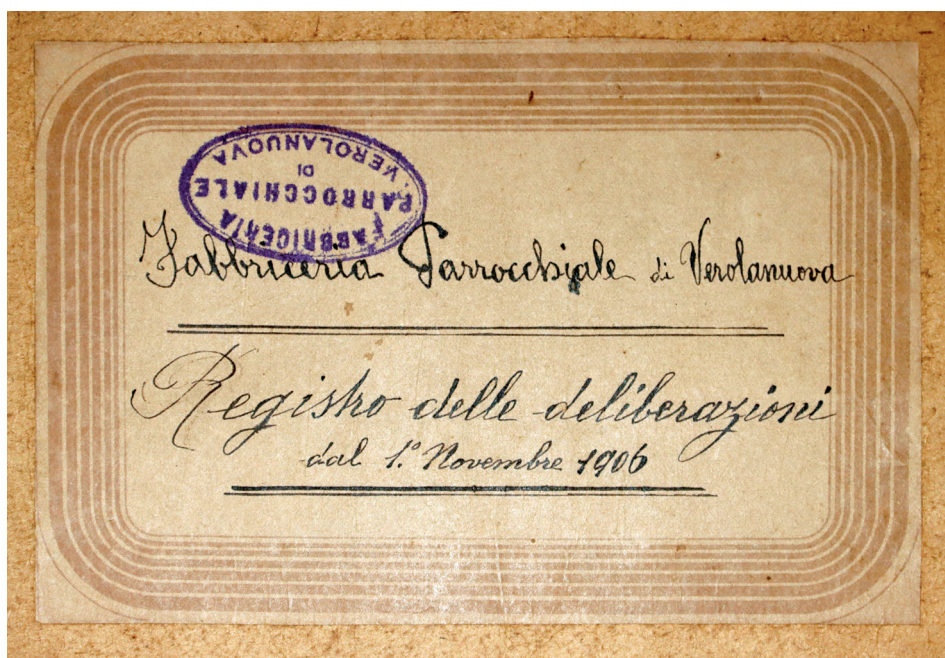 FABBRICERIA
PARROCCHIALE
DI
VEROLANUOVA
Fabbriceria Parrocchiale di Verolanuova
Registro delle deliberazioni
dal 1.° Novembre 1906